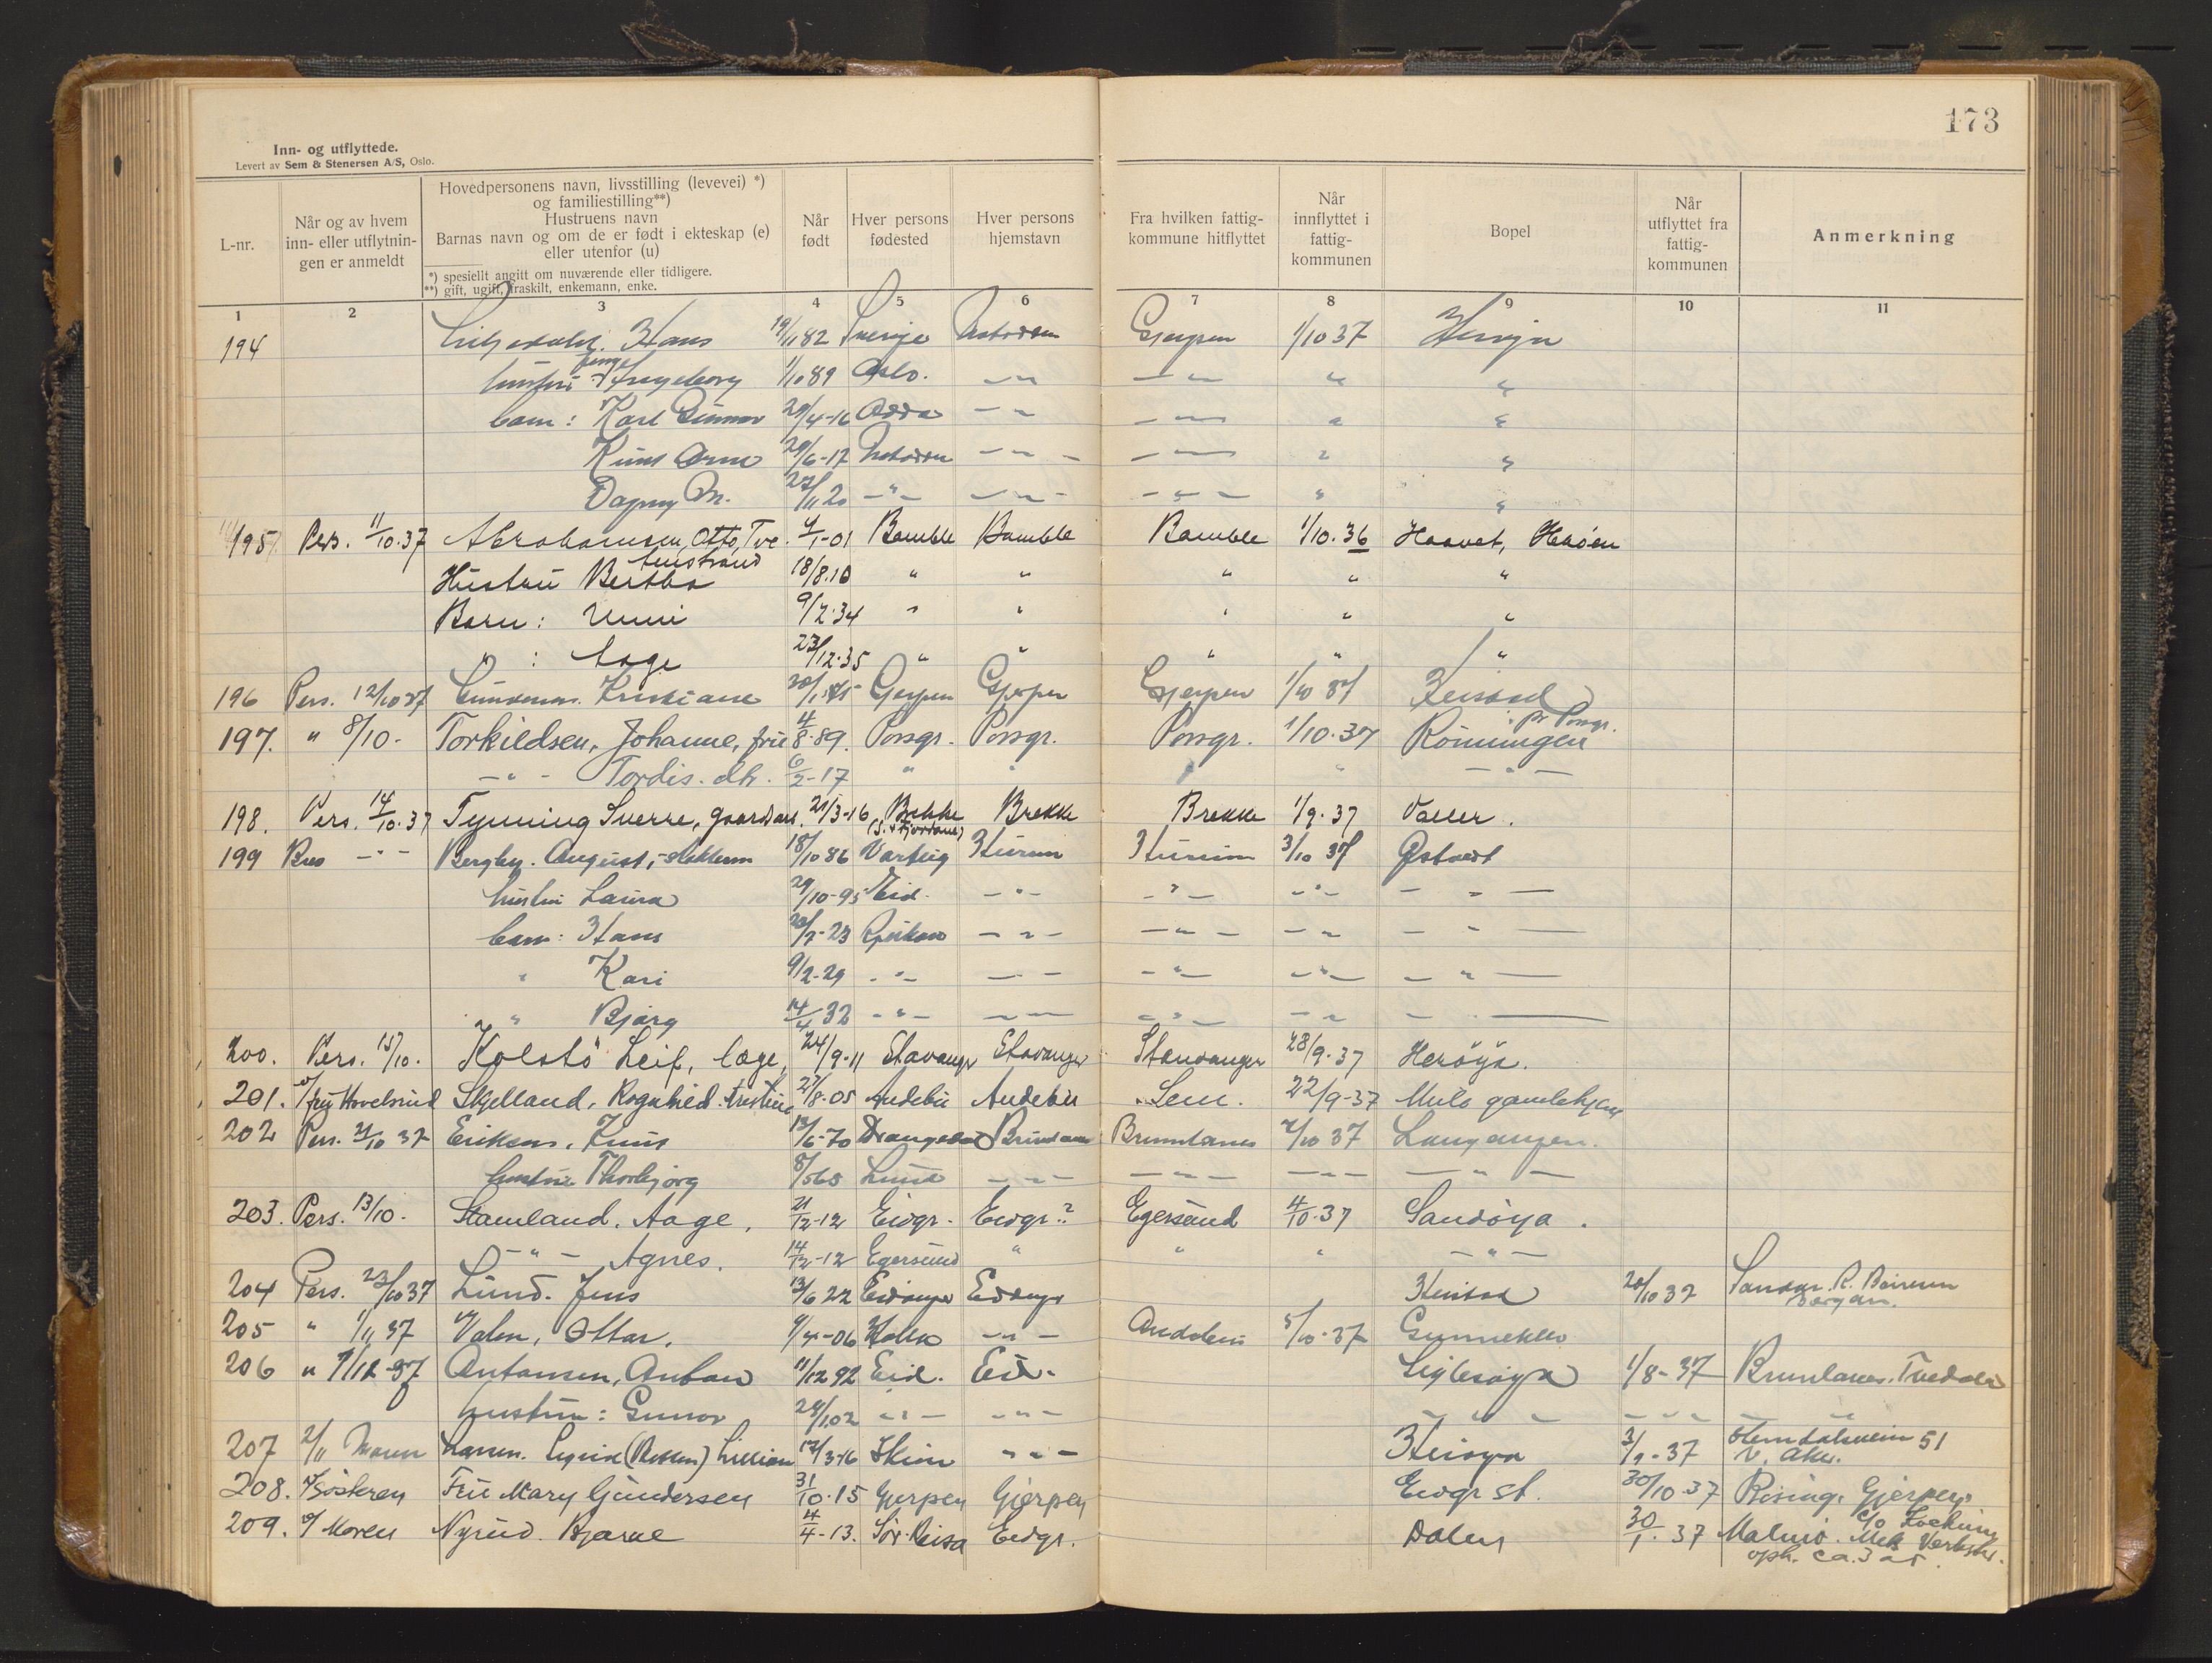 173
Inn- og utflyttede.
Levert av Sem & Stenersen A/S, Oslo.
L-nr.
Når og av hvem inn- eller utflytnin- gen er anmeldt
Hovedpersonens navn, livsstilling (levevei) *)
og familiestilling**)
Hustruens navn
Barnas navn og om de er født i ekteskap (e)
eller utenfor (u)
*) spesiellt angitt om nuværende eller tidligere.
**) gift, ugift, fraskilt, enkemann, enke.
Når født
Hver persons fødested
Hver persons hjemstavn
Fra hvilken fattig- kommune hitflyttet
Når innflyttet i fattig- kommunen
Bopel
Når utflyttet fra fattig- kommunen
Anmerkning
1 2 3 4 5 6 7 8 9 10 11
194 Hans 19/11 82 Sverige Notodden Gjerpen 1/10 37 Herøya
hustru Ingeborg 1/10 89 Oslo. -"- -"- " "
barn: Karl Gunnar 29/4-16 Odda -"- -"- " "
Knut Arne 29/6-17 Notodden -"- -"- " "
Dagny M. 27/11 20 -"- -"- -"- " "
195 Pers. 11/10.37 Abrahamsen, Otto, Tve. 4/1-01 Bamble Bamble Bamble 1/10.36 Haavet, Herøen
Hustru Bertha 18/8.10 " " " " "
Barn: Unni 9/2.34 " " " " "
" : Aage 23/12.35 " " " " "
196 Pers. 12/10 37 Gundersen. Kristiane Gjerpen Gjerpen Gjerpen 1/10 37 Heistad
197. " 8/10- Torkildsen, Johanne, frue 4/8-89. Porsgr. Porsgr. Porsgr. 1/10.37 Rönningen pr Porsgr.
-"- Tordis. dtr. 6/2-17 " " " " -"-
198. Pers. 14/10.37 Tynning Sverre, gaardsarb. 21/3-16 Brekke (S. & Fjordane) Brekke Brekke 1/9.37 Valler.
199 Pers -"- Bergby. August, 18/10 86 Varteig Hurum Hurum 3/10 37 Østvedt
hustru Laura 29/10-95 Eid. -"- -"- -"- - " -
barn: Hans 20/7-23 Rjukan -"- -"- -"- - " -
" Kari 9/2-29 -"- -"- -"- -"- - " -
" Bjørg 14/4 32 -"- -"- -"- -"- - " -
200. Pers. 15/10. Kolstö Leif, læge, 24/9-11 Stavanger Stavanger Stavanger 28/9.37 Heröya.
201. v/ frk Hovelsrud Skjelland, Ragnhild Kristine 27/8-05 Andebu Andebu Sem. 22/9-37 Mule gamlehjem
202 Pers. 21/10 37 Eriksen, 13/6-70 Drangedal Brunlanes Brunlanes 2/10 37 Langangen.
hustru Thorbjørg 8/5 65 Lunde -"- -"- -"- - " -
203. Pers. 13/10- Stamland, Aage, 21/12-12 Eidgr. Eidgr.? Egersund 4/10.37 Sandöya.
-"- Agnes. 14/12-12 Egersund " " " -"-
204 Pers. 23/10 37 Lund. Jens 13/6 22 Eidanger Eidanger Heistad 20/10 37 Sandar.
205 " 1/11 37 Valen, Ottar. 9/4-06 Holla -"- Andebu 5/10-37 Gunneklev
206 " 1/12-37 Antonsen, Anton 11/12 92 Eid. Eid. Siglesøya 1/8-37 Brunlanes. Tvedalen
hustru: Gunvor 28/1 02 -"- -"- - " - - " - - " -
207 2/11 Mann Larsen. Lillian 12/3-16 Skien -"- Herøya 3/9-37 51 V. Aker.
208. v/ Søsteren Frü Mary Gundersen 31/10.15 Gjerpen Gjerpen Eidgr st. 30/10.37 Rising. Gjerpen.
209. v/ Moren Nyrud Bjarne 4/4-13. Sör-Reisa Eidgr. Dalen 30/1.37 Malmö. c/o Mek Verksted.
oph. ca. 3 år